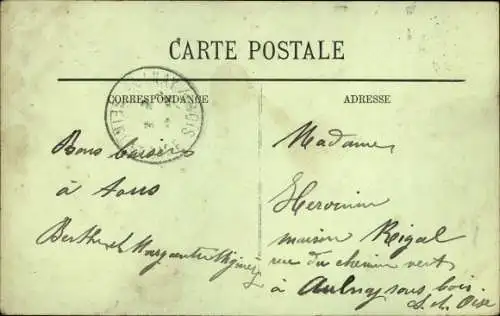 CARTE POSTALE
CORRESPONDANCE
Bons baisers
à tous
Berthe et Marguerite
ADRESSE
Madame
maison Rigal
rue du chemin vert
à Aulnay sous bois
S. et Oise